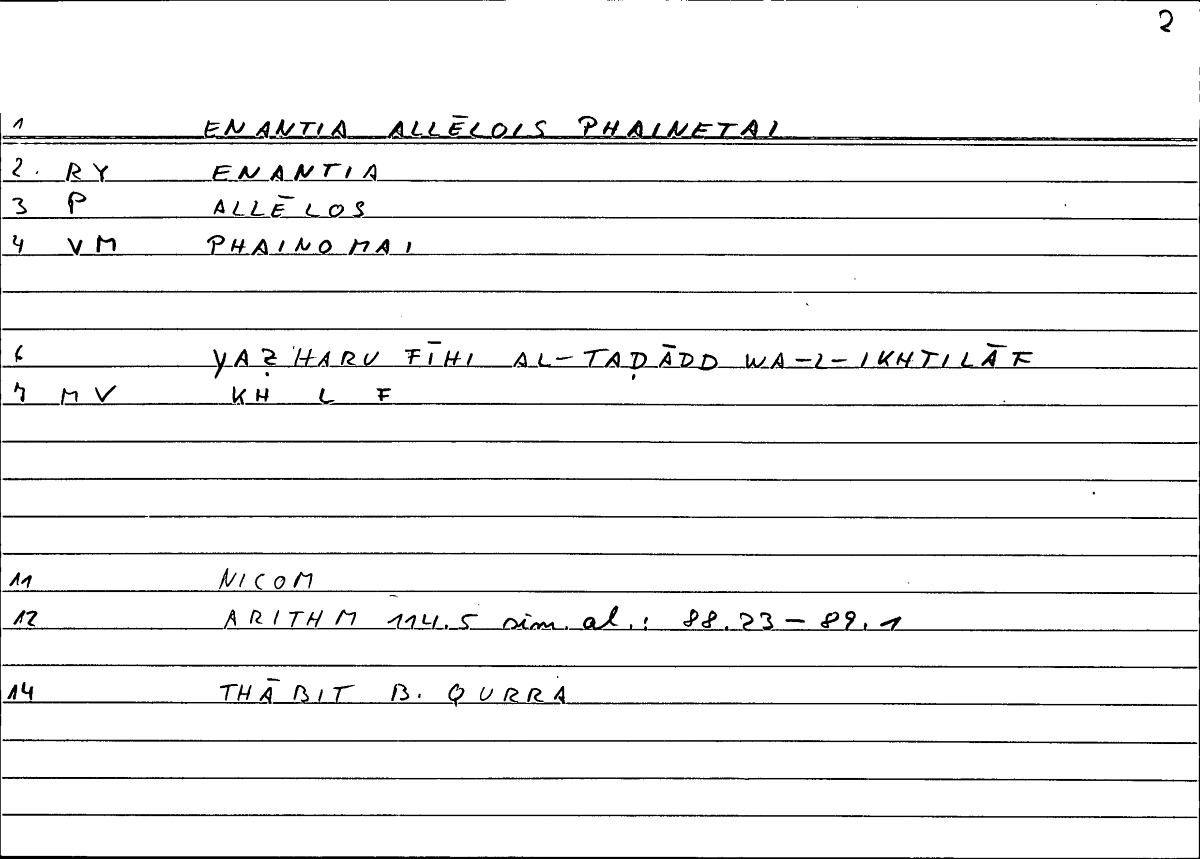 2
1 ENANTIA ALLĒLOIS PHAINETAI
2. RY ENANTIA
3 P ALLĒLOS
4 VM PHAINOMAI
6 YAẒHARU FĪHI AL-TAḌĀDD WA-L-IKHTILĀF
7 MV KH L F
11 NICOM
12 ARITHM 114.5 sim. al.: 88.23-89.1
14 THĀBIT B. QURRA